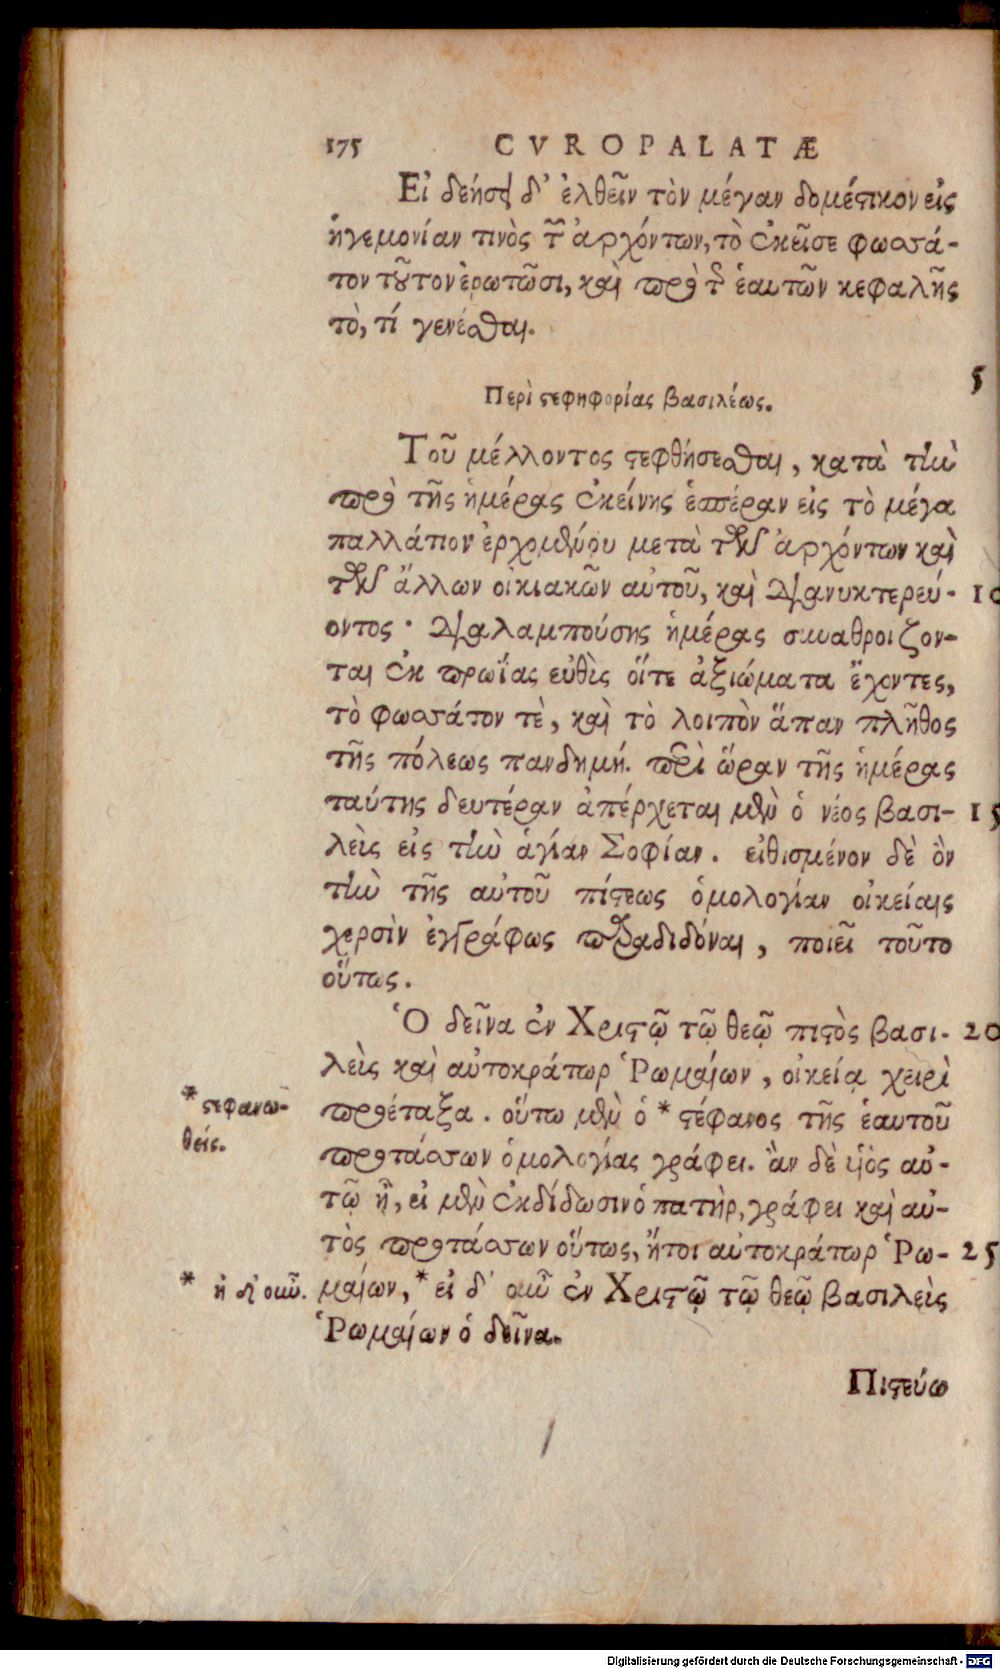 175 CVROPALATÆ
Εἰ δεήσει δ' ἐλθεῖν τὸν μέγαν δομέστικον εἰς
ἡγεμονίαν τινὸς τῶν ἀρχόντων, τὸ ἐκεῖσε φωσσά-
τον τοῦτον ἐρωτῶσι, καὶ πρὸ τῆς ἑαυτῶν κεφαλῆς
τὸ, τί γενέσθαι.
5
Περὶ στεφηφορίας βασιλέως.
Τοῦ μέλλοντος στεφθήσεσθαι, κατὰ τὴν
πρὸ τῆς ἡμέρας ἐκείνης ἑσπέραν εἰς τὸ μέγα
παλλάτιον ἐρχομένου μετὰ τῶν ἀρχόντων καὶ
τῶν ἄλλων οἰκιακῶν αὐτοῦ, καὶ διανυκτερεύ- 10
οντος· διαλαμπούσης ἡμέρας συναθροιζον-
ται ἐκ πρωΐας εὐθὶς οἵτε ἀξιώματα ἔχοντες,
τὸ φωσσάτον τὲ, καὶ τὸ λοιπὸν ἅπαν πλῆθος
τῆς πόλεως πανδημή. περὶ ὥραν τῆς ἡμέρας
ταύτης δευτέραν ἀπέρχεται μὲν ὁ νέος βασι- 15
λεὺς εἰς τὴν ἁγίαν Σοφίαν. εἰθισμένον δὲ ὂν
τὴν τῆς αὐτοῦ πίστεως ὁμολογίαν οἰκείαις
χερσὶν ἐγγράφως παραδιδόναι, ποιεῖ τοῦτο
οὕτως.
Ὁ δεῖνα ἐν Χριστῷ τῷ θεῷ πιστὸς βασι- 20
λεὺς καὶ αὐτοκράτωρ Ῥωμαίων, οἰκείᾳ χειρὶ
* στεφανω-
θείς.
προέταξα. οὕτω μὲν ὁ * στέφανος τῆς ἑαυτοῦ
προτάσσων ὁμολογίας γράφει. ἂν δὲ υἱὸς αὐ-
τῷ ᾖ, εἰ μὲν ἐκδίδωσιν ὁ πατὴρ, γράφει καὶ αὐ-
τὸς προτάσσων οὕτως, ἤτοι αὐτοκράτωρ Ῥω- 25
* ἡ δ' οὖν.
μαίων, * εἰ δ' οὖν ἐν Χριστῷ τῷ θεῷ βασιλεὺς
Ῥωμαίων ὁ δεῖνα.
Πιστεύω
Digitalisierung gefördert durch die Deutsche Forschungsgemeinschaft - DFG